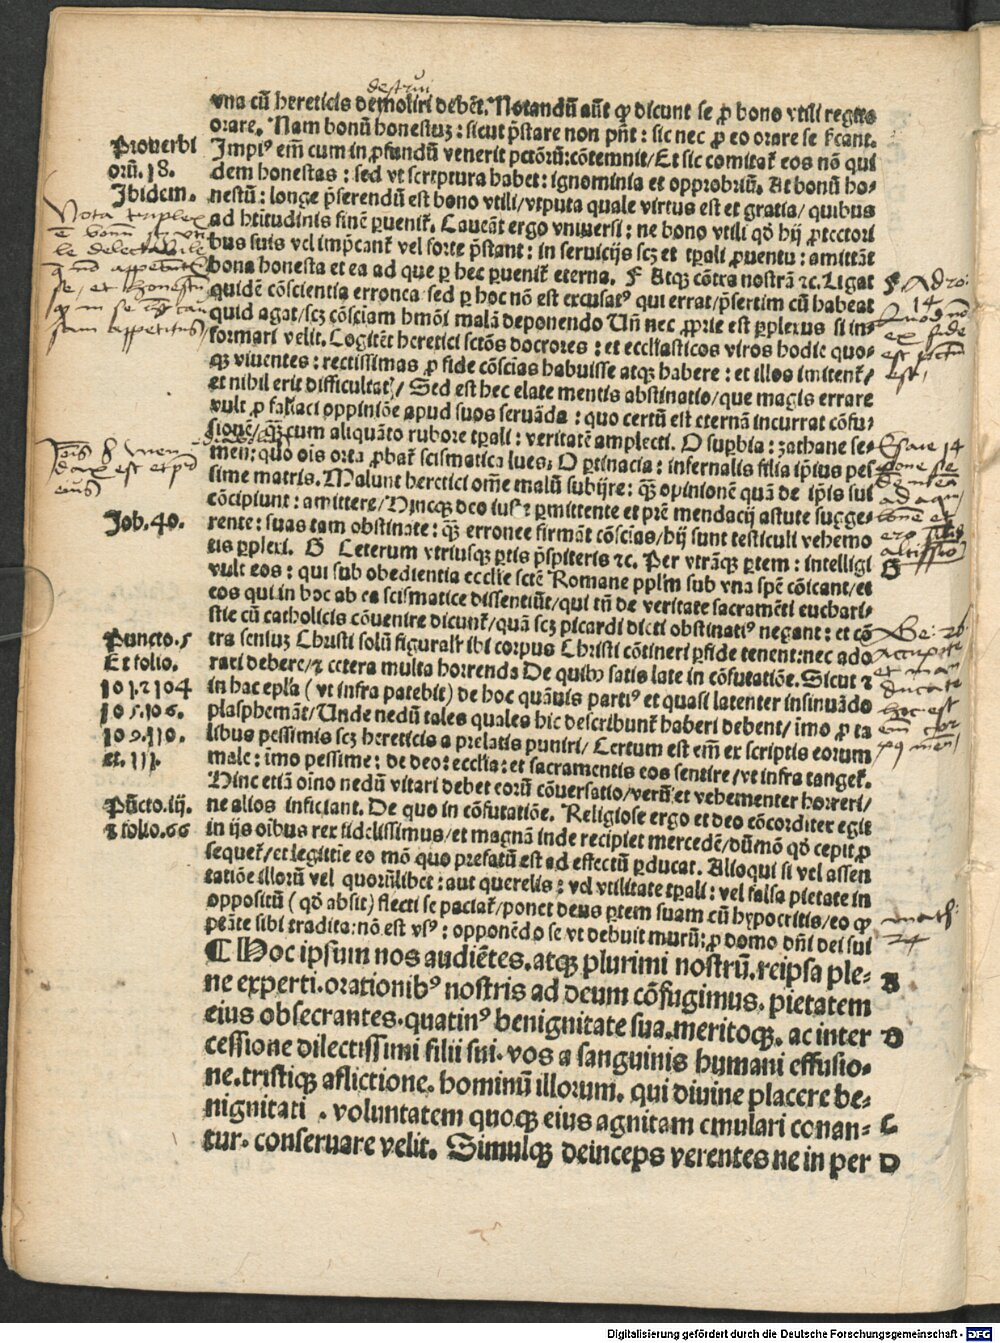 destrui
vna cū hereticis demoliri debēt. Notandū aūt ꝙ dicunt se ꝓ bono vtili regios
orare. Nam bonū honestuꝫ : sicut p̄stare non pn̄t : sic nec ꝓ eo orare se
Proverbi
orū. 18.
Ibidem.
Impiꝰ em̄ cum in ꝓfundū venerit pctōrū: cōtemnit/ Et sic comitat̄ eos nō qui
dem honestas : sed vt scriptura habet : ignominia et opprobriū. At bonū ho-
nestū : longe p̄ferendū est bono vtili/ vtputa quale virtus est et gratia/ quibus
ad btitudinis finē ꝑuenit̄. Caueāt ergo vniuersi : ne bono vtili qd̄ hij ꝓtectori
bus suis vel imp̄cant̄ vel forte p̄stant : in seruicijs scꝫ et tp̄ali ꝓuentu : amittāt
bona honesta et ea ad que ꝑ hec ꝑuenit̄ eterna. F Atqꝫ cōtra nostrā ⁊c. Ligat
quidē cōscientia erronea sed ꝑ hoc nō est excusatꝰ qui errat/ p̄sertim cū habeat
quid agat/ scꝫ cōsciam hmōi malā deponendo Un̄ nec ꝓprie est ꝑplexus si in-
formari velit. Cogitēt heretici sctōs doctores : et ecclīasticos viros hodie quo-
qꝫ viuentes : rectissimas ꝓ fide cōscias habuisse atqꝫ habere : et illos imitent̄/
et nihil erit difficultatꝭ/ Sed est hec elate mentis abstinatio/ que magis errare
vult ꝓ fallaci oppiniōe apud suos seruāda : quo certū est eternā incurrat cōfu-
sionē/ qꝫ cum aliquāto rubore tp̄ali : veritatē amplecti. O supbia : zathane se-
men: quo ois orta ꝓbat̄ scismatica lues, O ꝑtinacia : infernalis filia ip̄ius pes
sime matris. Malunt heretici om̄e malū subijre: qꝫ opinionē quā de ip̄is sui
cōcipiunt : amittere/ Hincqꝫ deo iuste ꝑmittente et pr̄e mendacij astute sugge-
Job. 40.
rente: suas tam obstinate : qꝫ erronee firmāt cōscias/ hij sunt testiculi vehemo
tis ꝑplexi. G Ceterum vtriusqꝫ ꝑtis p̄spiteris ⁊c. Per vtrāqꝫ ꝑtem : intelligi
vult eos : qui sub obedientia ecclīe sctē Romane pplm̄ sub vna spē cōicant/ et
eos qui in hoc ab ea scismatice dissentiūt/ qui tn̄ de veritate sacramēti euchari-
stie cū catholicis cōuenire dicunt̄/ quā scꝫ picardi dicti obstinatiꝰ negant : et cō
Puncto. 5
Et folio.
101. ⁊ 104
105. 106.
109. 110.
et. 111.
tra sensuꝫ Christi solū figuralr̄ ibi corpus Christi cōtineri ꝑfide tenent: nec ado
rari debere/ ⁊ cetera multa horrenda De quibꝰ satis late in cōfutatiōe. Sicut ⁊
in hac epl̄a ( vt infra patebit) de hoc quāuis partiꝰ et quasi latenter insinuādo
plasphemāt/ Unde nedū tales quales hic describunt̄ haberi debent/ imo ꝓ ta
libus pessimis scꝫ hereticis a prelatis puniri/ Certum est em̄ ex scriptis eorum
male : imo pessime : de deo: ecclīa : et sacramentis eos sentire/ vt infra tanget̄.
Hinc etiā oīno nedū vitari debet eorū cōuersatio/ verū et vehementer horreri/
Pūcto. iij.
⁊ folio. 66
ne alios inficiant. De quo in cōfutatiōe. Religiose ergo et deo cōcorditer egit
in ijs oībus rex fidelissimus/ et magnā inde recipiet mercedē/ dūmō qd̄ cepit ꝓ
sequet̄/ et legittīe eo mō quo prefatū est ad effectū ꝑducat. Alioqui si vel assen
tatiōe illorū vel quorūlibet : aut querelis : vel vtilitate tp̄ali : vel falsa pietate in
oppositū ( qd̄ absit) flecti se paciat̄/ ponet deus ꝑtem suam cū hypocritis/ eo ꝙ
pt̄āte sibi tradita: nō est vsꝰ : opponēdo se vt debuit murū: ꝓ domo dn̄i dei sui
¶ Hoc ipsum nos audiētes. atqꝫ plurimi nostrū. reipsa ple-
B
ne experti. orationibꝰ nostris ad deum cōfugimus. pietatem
eius obsecrantes. quatinꝰ benignitate sua. meritoqꝫ. ac inter
D
cessione dilectissimi filii sui. vos a sanguinis humani effusio-
ne. tristiqꝫ aflictione. hominū illorum. qui divine placere be-
nignitati . voluntatem quoqꝫ eius agnitam emulari conan-
C
tur. conseruare velit. Simulqꝫ deinceps verentes ne in per
D
F Ad ro:
14
Esaie 14
G
math:
24